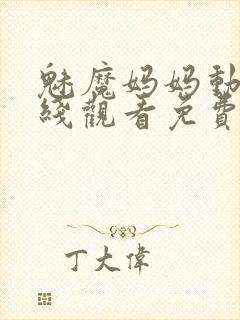 魅魔妈妈動
綫觀看免費
丁大偉